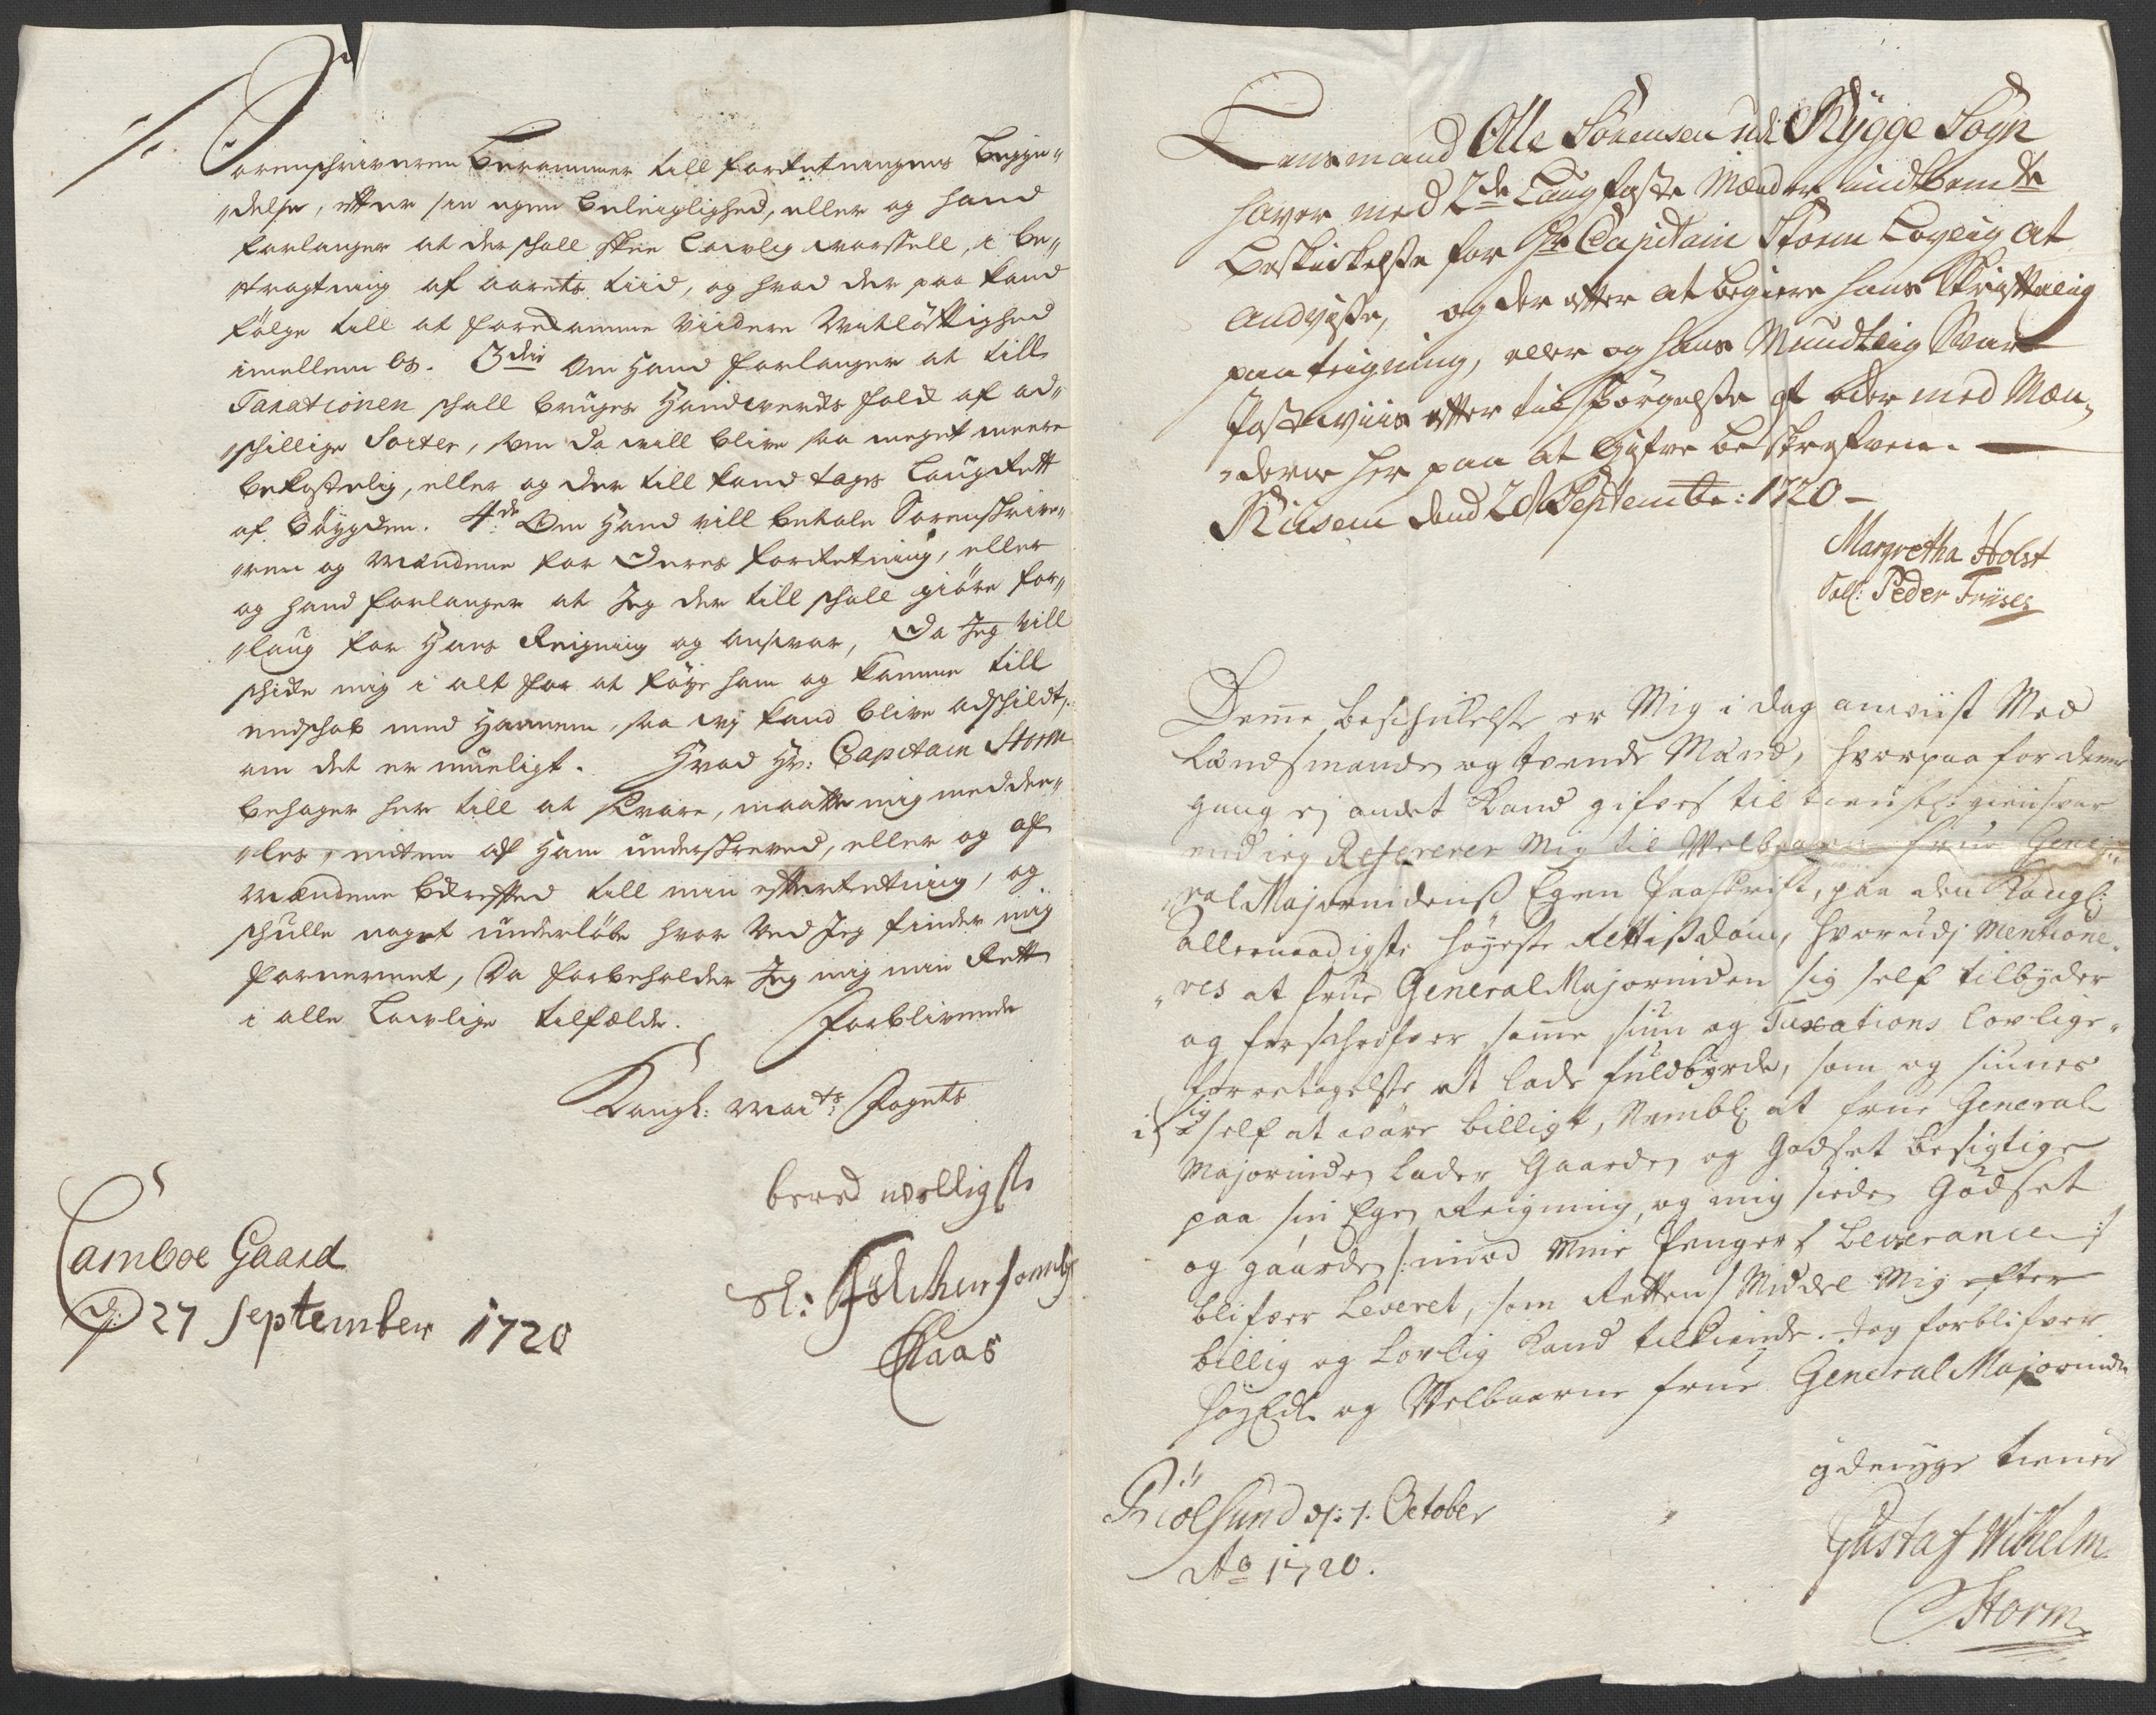 Sorenschriveren Berammer till forretningens begyn„
„delse, efter sin egen beleiglighed, eller og hand
forlanger at der schall skee Lowlig warssell, i be„
„tragtning af aarets tiid, og hvad der paa kand
følge till at forekomme viidere Witløftighed
imellem os. 3die Om Hand forlanger at till
Taxationen schall bruges Handtverks folck af ad„
„schillige Sorter, som da will blive saa meget meere
bekostelig, eller og der till kand tages Laugrett
af bøygden. 4de Om Hand vill betale Sorenskrive„
„ren og Mændene for deres forretning, eller
og hand forlanger at Jeg der till schall giøre for„
„laug for Hans Reigning og answar, da Jeg vill
schicke mig i alt for at føye ham og komme till
endschab med Hannem, saa wj kand blive adschildt,
om det er mueligt. Hvad Hr: Capitain Storm
behager her till at svare, maatte mig medde„
„les, enten af Ham underskreved, eller og af
Mændene bekrefted till min efterretning, og
schulle noget underløbe hvor ved Jeg finder mig
fornermet, da forbeholder Jeg mig min Rett
i alle Lowlige tilfælde. Forblivende
Kongl: Maits: Fogets
bered willigste
Sl:
Claas
Camboe Gaard
d: 27 September 1720
Lensmand Olle Sørensen udi Rygge Sogn
haver med 2de Laugfaste Mænd er indbemte
Beskickelse for Hr Capitain Storm Lovlig at
andvisse, og der efter at begiere hans Skriftelig
paateigning, eller og hans Mundtlig Svar
post wiis efter tilspørgelse af eder med Mæn„
„dene her paa at Gifve beskrefven.
Kiisem dend 28 Septembr: 1720 –
Margretha Holst
Sall: Peder Friises
Denne beschickelse er Mig i dag anviist Med
Lændsmanden og tvende Mænd, hvorpaa for denne
gang ej andet Kand gifves til giensvar
end ieg Refererer Mig til Welbaarne Frue Gene„
„ral Majorindens Egen Paaskrift, paa den Kongl:
allernaadigste høyeste Rettis dom, hvorudj mentione„
„res at Frue General Majorinden sig self tilbyder
og forschrifver samme siun og Taxations lovlige„
foretagelse at lade fuldbyrde, som og siunes
i sig self at være billigt, Nembl: at Frue General
Majorinden lader Gaarden og Godset besigtige
paa sin Egen Reigning, og mig siden Godset
og gaarden /: imod Mine Penges Leverance :/
blifver Leveret, som Rettens Middel Mig efter
billig og Lovlig Kand tilkiende. Jeg forblifver
HøyEdle og Welbaarne Frue General Majorinden
ydmyge tiener
Kiölsund d: 1. October
Ao 1720.
Gustaf Wilhelm
Storm